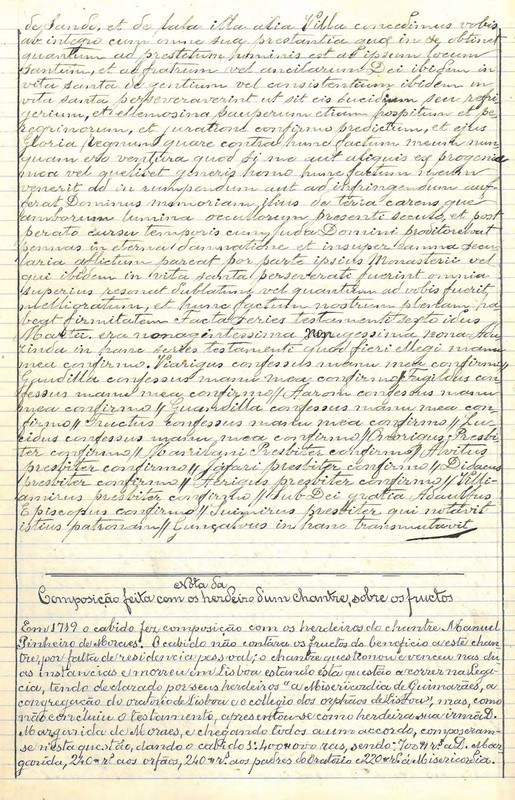 de Sande, et de tala illa alia Villa concedimus vobis
ab integro cum omne sua prestantia qua in se obtinet
quantum ad prestitum hominis est ad ipsum locum
santum, et ad fratrum vel ancilarum Dei ibidem in
vita santa de gentium vel consistentium ibidem in
vita santa perseveraverint ut sit eis lucidium seu refri-
gerium, et elemosina pauperum etiam hospitum et pe-
regrinorum, et juratione confirmo predictum, et ejus
Gloria Regnum quare contra hunc factum meum nun-
quam ero ventura quod si me aut aliquis ex progenie
mea vel quelibet generis homo hunc factum meum
venerit ad in rumpendum aut ad infringendum auf-
ferat Dominus memoriam illius de terra carens que
amborum lumina occullorum presenti seculo, et post
perato cursu temporis cum Juda Domini proditore luat
pennas in eterna damnatione et insuper damna secu-
laria adlictum pareat por parte ipsius Monasterii vel
qui ibidem in vita santa perseverati fuerint omnia
superius resonat dublatum vel quantum ad vobis fuerit
melhioratum, et hunc factum nostrum plenam ha
beat firmitatem. Facta series testamenti sexto idus
Martii. era nonagentessima nonagessima nona. Adu-
zinda in hanc series testamenti quod fieri ellegi manu
mea confirmo. Viarigus confessus manu mea confirmo//
Gaudilla confessus manu mea confirmo// Fugitibus con-
fessus manu mea confirmo// Aarom confessus manu
mea confirmo// Guandilla confessus manu mea con-
firmo// Fructus confessus manu mea confirmo// Lu-
cidus confessus manu mea confirmo// Onorigus Presbi-
ter confirmo// Mauritani Presbiter confirmo// Alvitus
presbiter confirmo// Jafari presbiter confirmo// Didacus
presbiter confirmo// Aerigus presbiter confirmo// Villi-
amirus presbiter confirmo// Sub Dei gratia Adaulfus
Episcopus confirmo// Suimirus presbiter qui notavit
istius patronam// Gunçalvus in hanc transmutavit
Nota da
Composição feita com os herdeiro d'um chantre, sobre os fructos
Em 1719 o cabido fez composição com os herdeiros do chantre Manuel
Pinheiro de Moraes. O cabido não contára os fructos do beneficio a este chan-
tre, por falta de residencia pessoal; o chantre questionou e venceu nas du-
as instancias e morreu em Lisboa estando esta questão a correr na Lega-
cia, tendo declarado por seus herdeiros "a Misericordia de Guimarães, a
congregação do oratorio de Lisboa e o collegio dos orphãos de Lisboa", mas, como
não concluiu o testamento, apresentou-se como herdeira sua irmã D.
Margarida de Moraes, e chegando todos a um accordo, compozeram-
se n'esta questão, dando o cabido 1:400#000 reis, sendo: 700# rs. a D. Mar-
garida, 240# rs. aos orfãos, 240# rs. aos padres do Oratorio e 220# rs. á Misericordia.